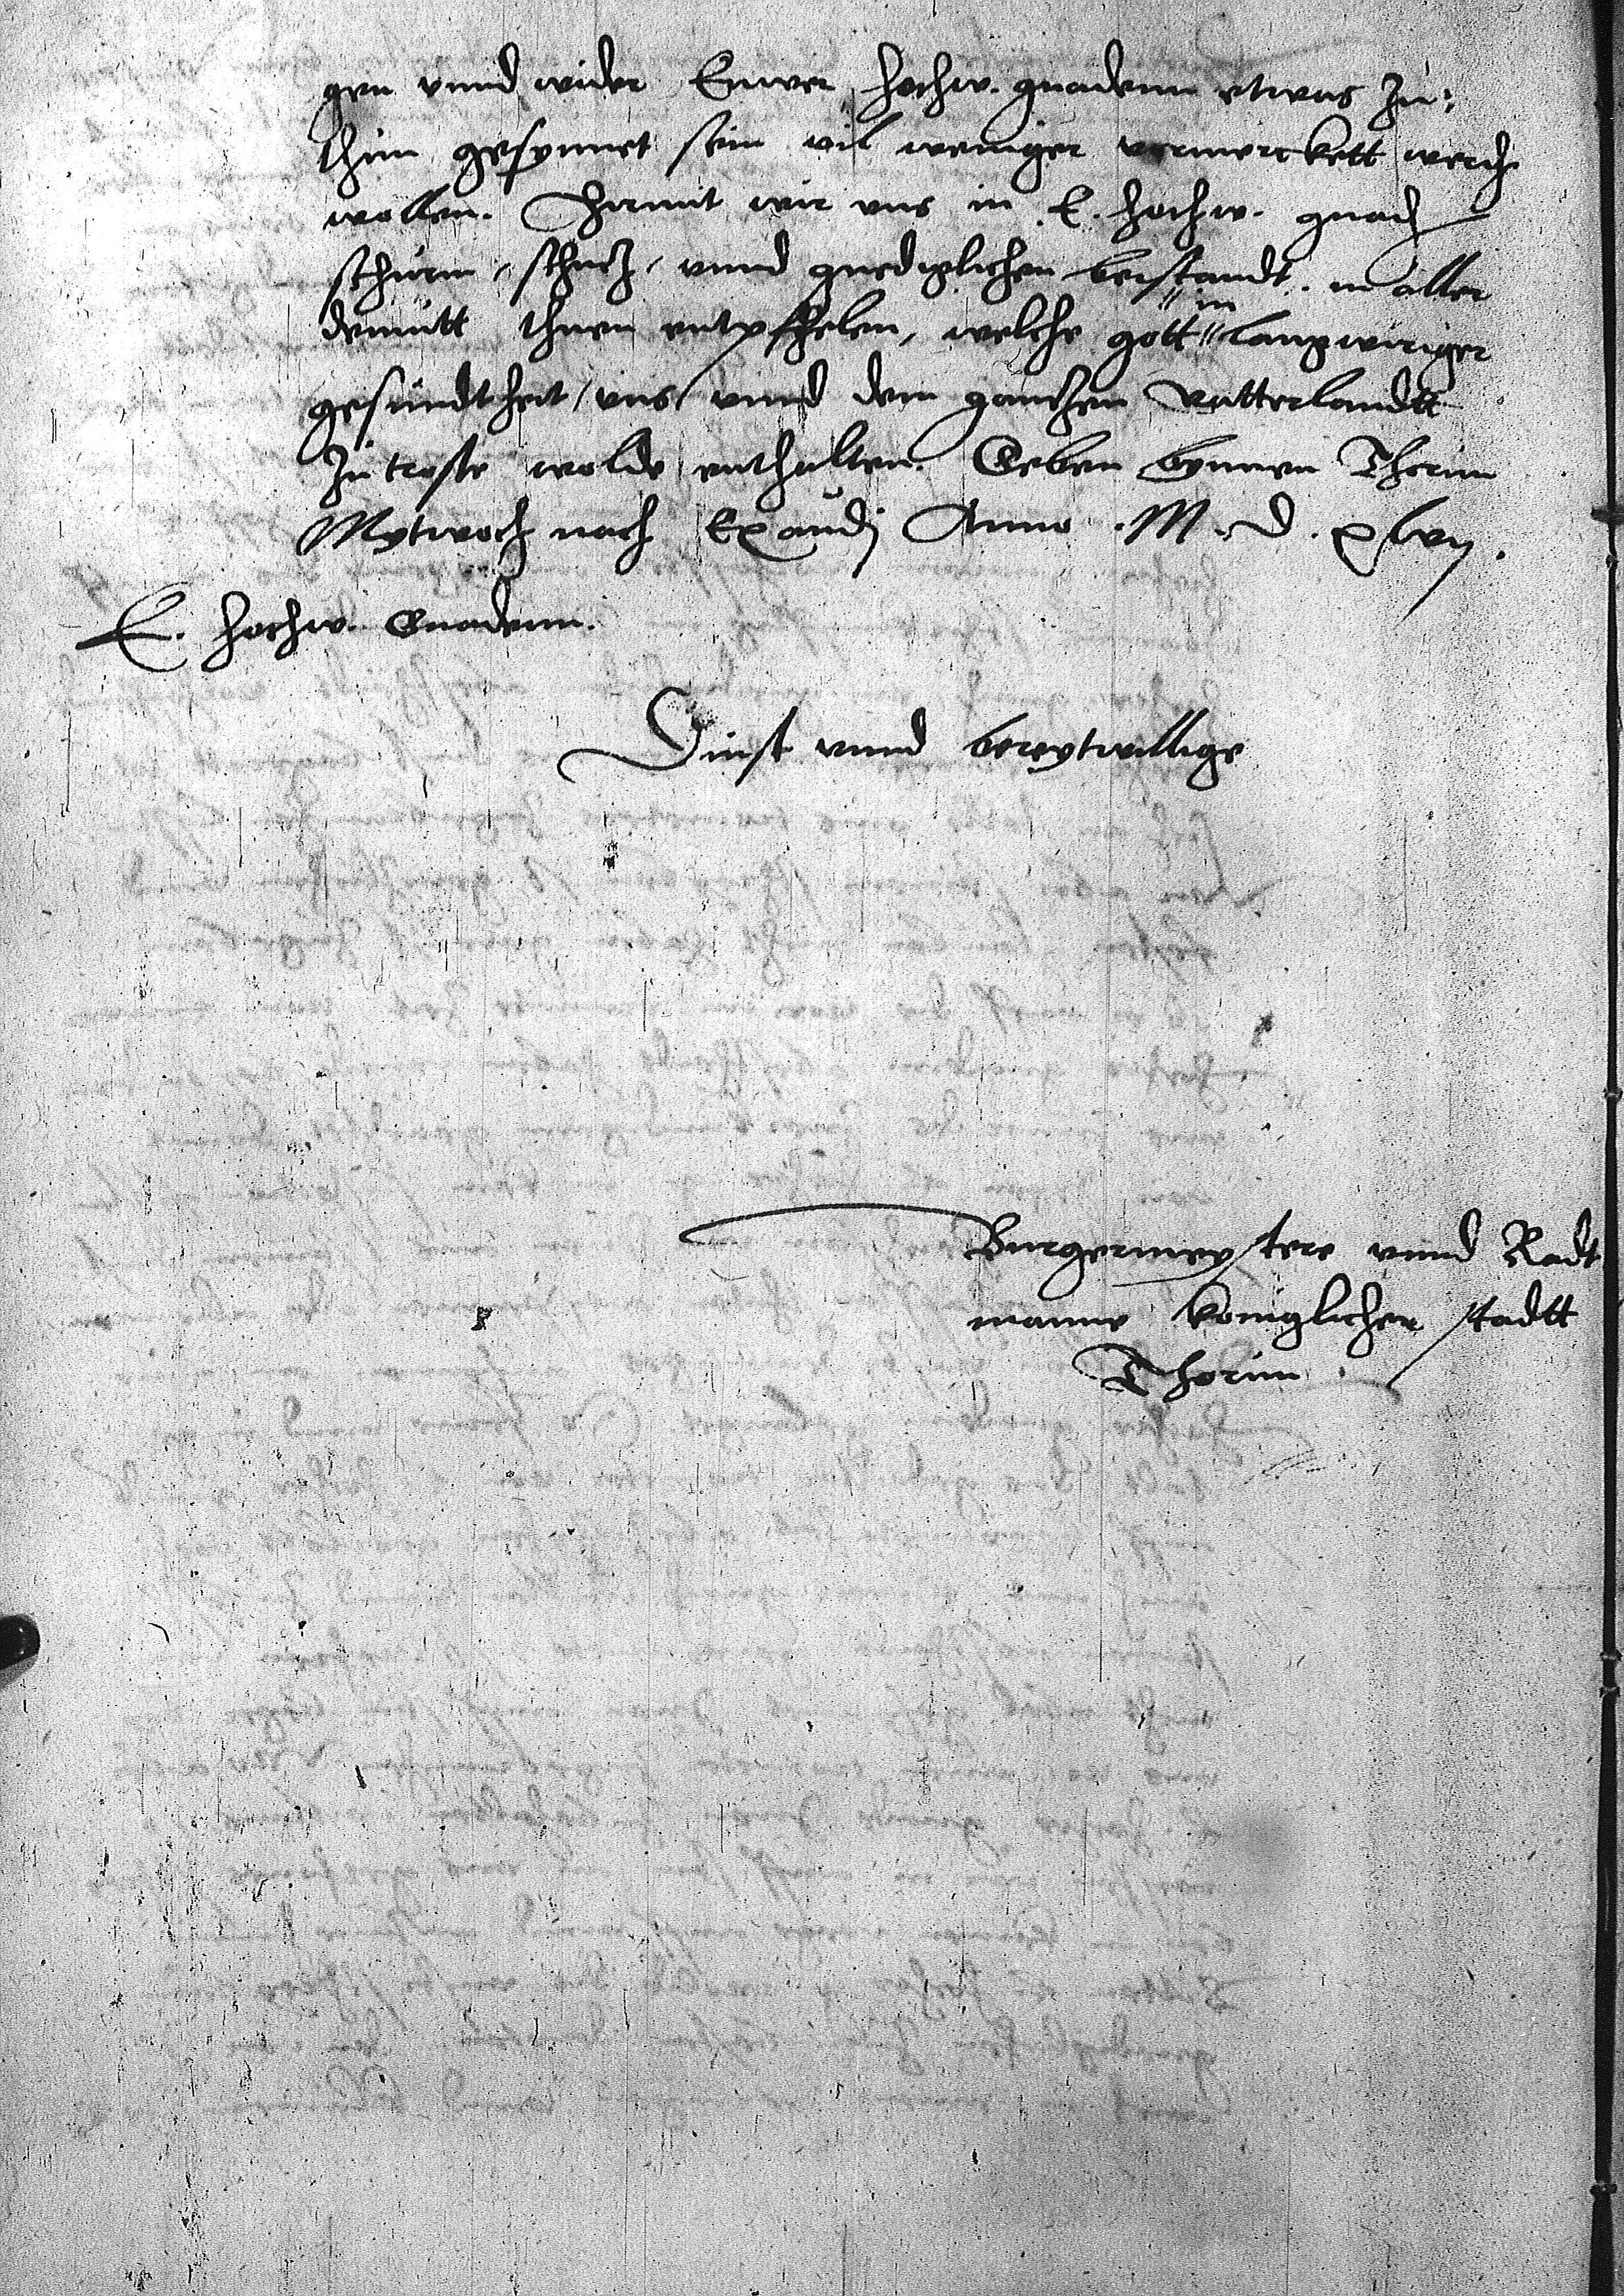 gen vnnd wider Ewer hochw. gnadenn etwas zu:
thun gesynnet sein vil weniger vermerckett werden
wollen. Hirmit wir vns in E. hochw. gnad
schirm, schutz, vnnd gnediglichen beistandt. in aller
demutt thuen entpfhelen, welche gott "in" langwiriger
gesundtheit, vns, vnnd dem gantzen Vatterlandt
zu troste wolde enthalten. Geben bynnen Thorun
Mytwoch nach Exaudj Anno .M.D.xlvij.
E. hochw. Gnadenn.
Dinst vnnd bereytwillige
Burgermeystere vnnd Radt
manne koniglicher stadtt
Thorun.